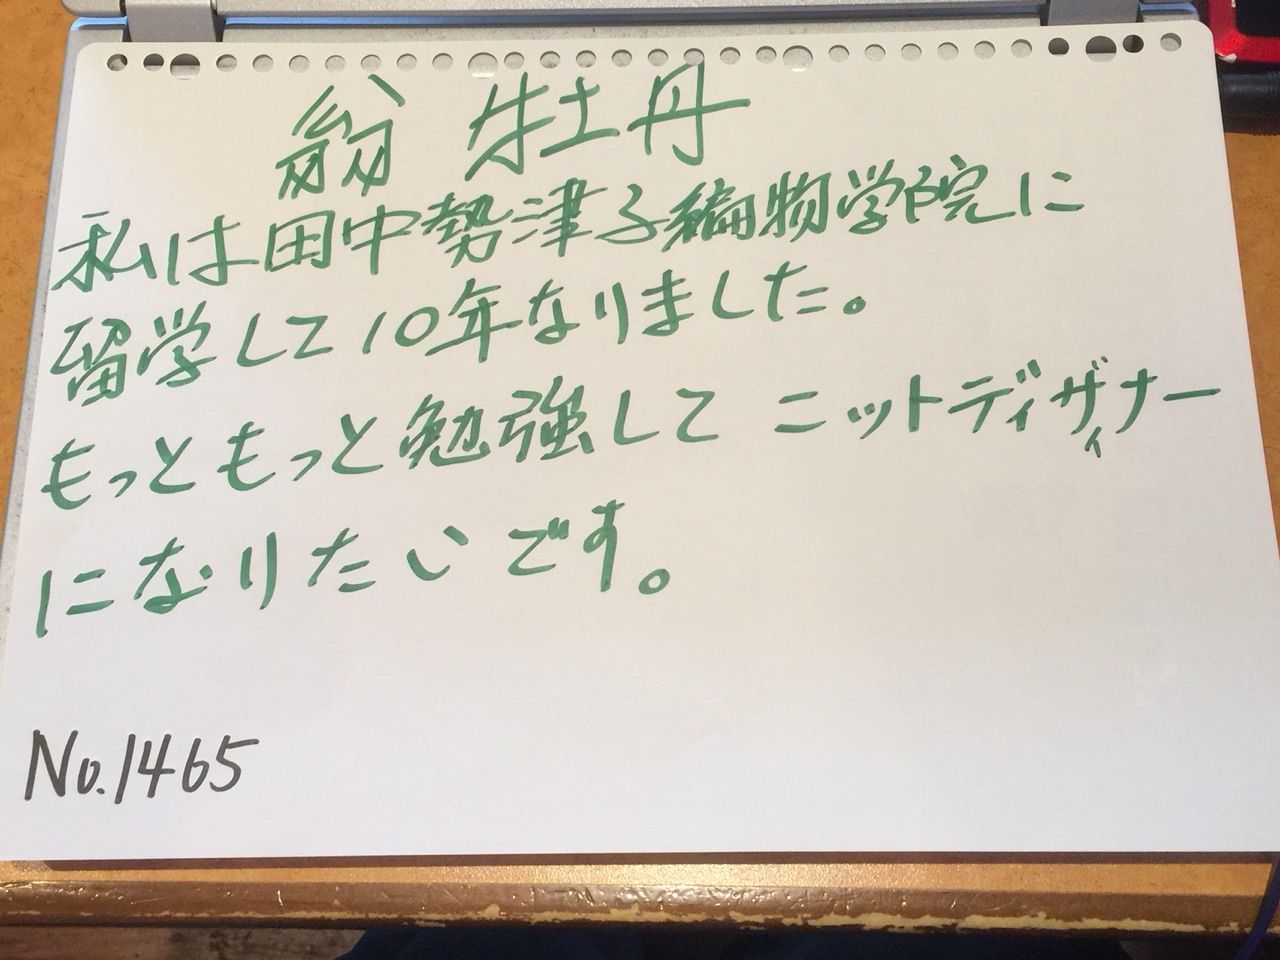 翁 牡丹
私は田中勢津子編物学院に
留学して10年なりました。
もっともっと勉強してニットディザィナー
になりたいです。
No.1465